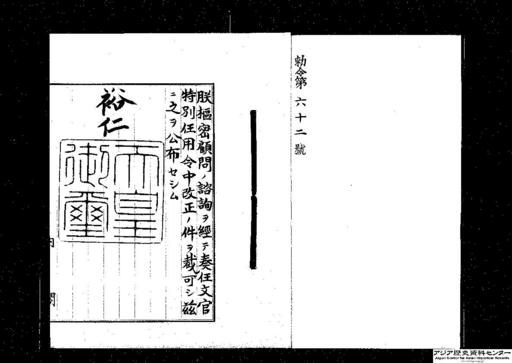 勅令第六十二號
朕樞密顧問ノ諮詢ヲ經テ奏任文官
特別任用令中改正ノ件ヲ裁可シ茲
ニ之ヲ公布セシム
裕仁
天皇御璽
アジア歴史資料センター
Japan Center for Asian Historical Records